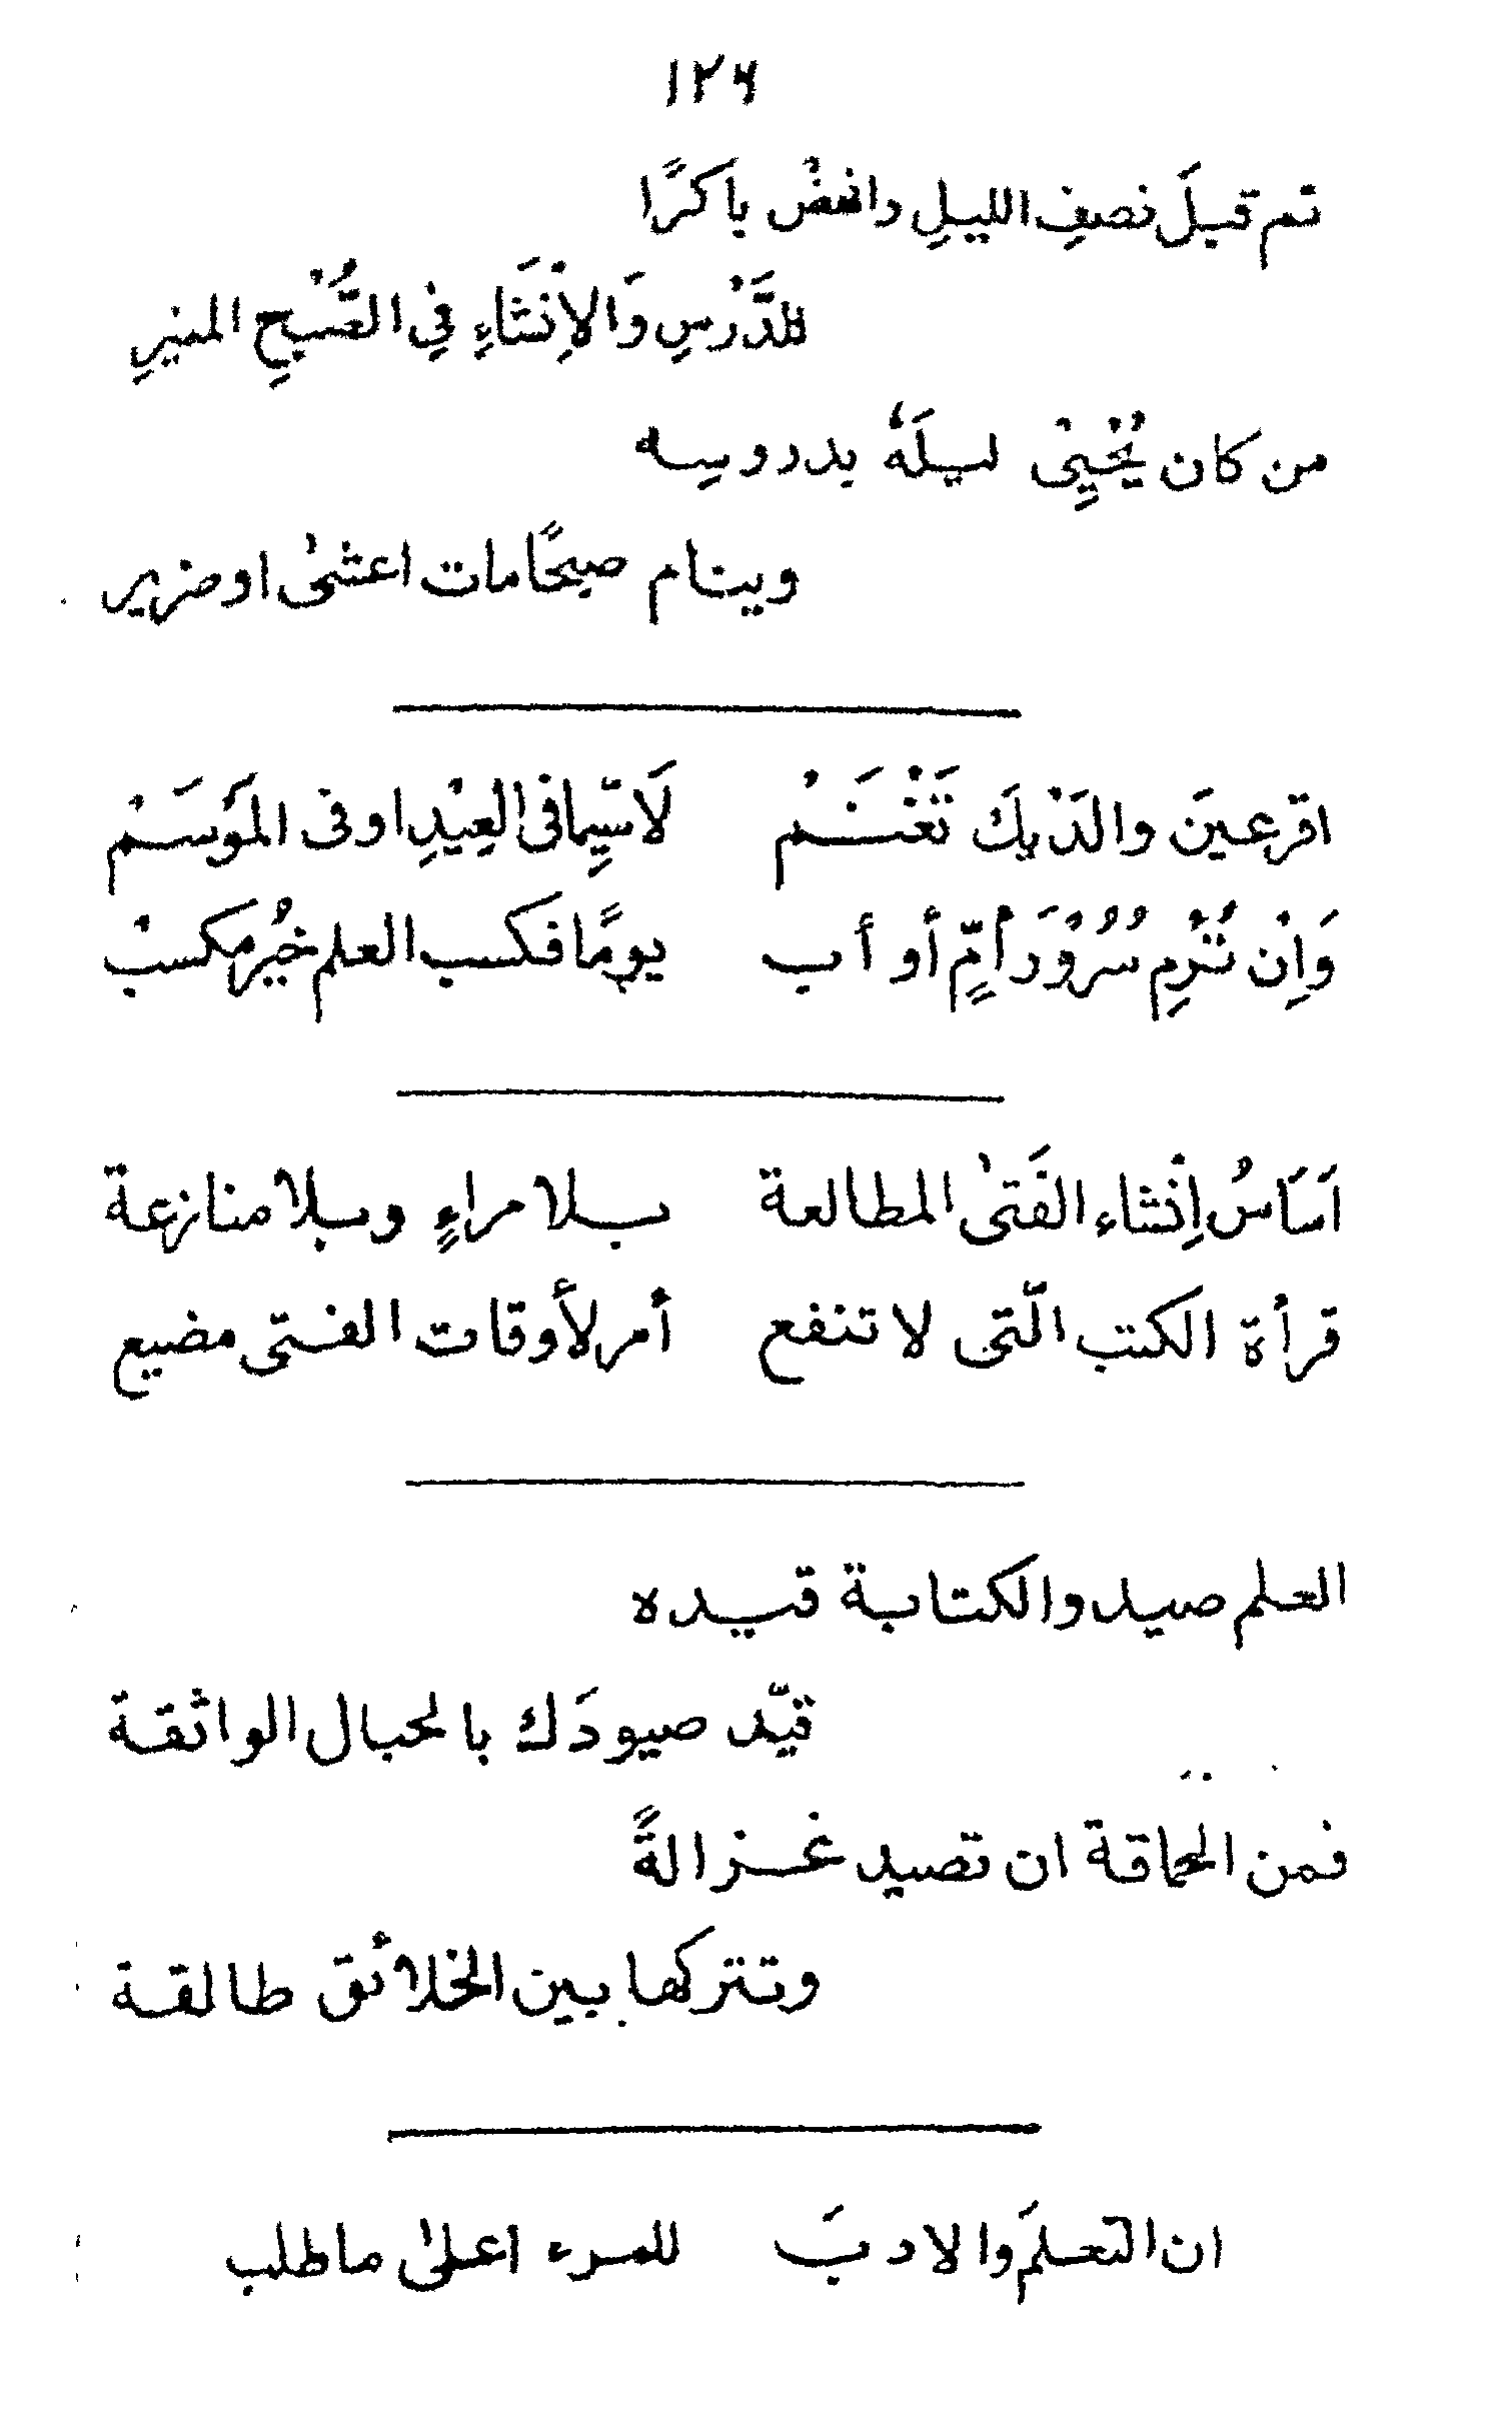 ١٢٦
نم قبلَ نصفِ الليلِ وانهضْ باكرًا
للدَّرْسِ وَالإِنْشَاءِ فِي الصُّبْحِ المنيرِ
من كان يُحْيِىْ ليلَهُ بدروسِه
وينام صبحًا مات اعشىٰ او ضرير
اقر عينَ والدَيْكَ تَغْنَمْ لَا سيِّما فى العِيْدِ او فى المَوسَمْ
وَاِنْ تُرْمِ سُرُوْرَ أُمٍّ أو أب يومًا فكسب العلم خيْر مكسبْ
اَسَاسُ اِنْشاء الفَتىٰ المطالعة بلا مراءٍ وبلا منازعة
قرأة الكتب الّتى لا تنفع أمر لأوقات الفتى مضيع
العلم صيد والكتابة قيده
قيّد صيودَك بالحبال الواثقة
فمن الحماقة ان تصيد غزالةً
وتتركها بين الخلائق طالقة
ان التعلمَ والادبَ للمرء اعلىٰ ما طلب